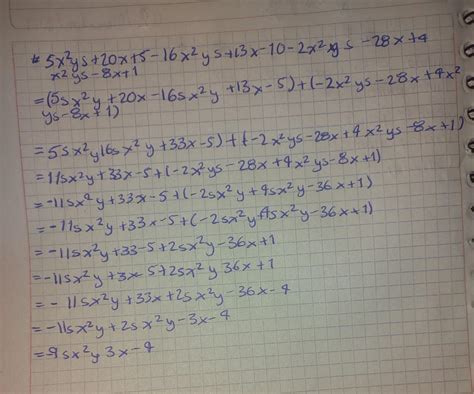 * 5x²ys+20x+5-16x²ys+13x-10-2x²ys-28x+4
x²ys-8x+1
=(5sx²y+20x-16sx²y+13x-5)+(-2x²ys-28x+4x²
ys-8x+1)
=5sx²y16sx²y+33x-5)+(-2x²ys-28x+4x²ys-8x+1)
=11sx²y+33x-5+(-2x²ys-28x+4x²ys-8x+1)
=-11sx²y+33x-5+(-2sx²y+4sx²y-36x+1)
=-11sx²y+33x-5+(-2sx²y+4sx²y-36x+1)
=-11sx²y+33-5+2sx²y-36x+1
=-11sx²y+3x-5+2sx²y36x+1
=-11sx²y+33x+2sx²y-36x-4
=-11sx²y+2sx²y-3x-4
=9sx²y3x-4